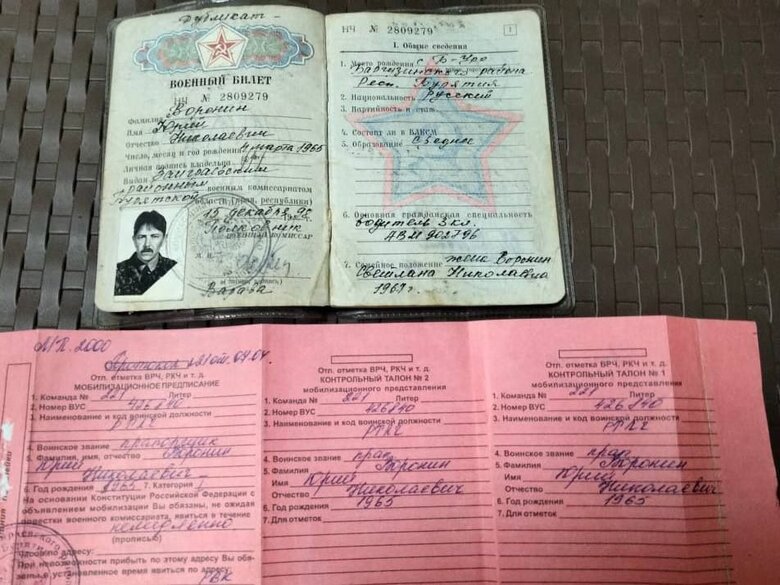 Дубликат
ВОЕННЫЙ БИЛЕТ
НЧ № 2809279
Фамилия Воронин
Имя Юрий
Отчество Николаевич
Число, месяц и год рождения 4 марта 1965
Личная подпись владельца
Выдан Заиграевским
районным военным комиссариатом
Бурятской области (края, республики)
15 декабря 95
Полковник
ВОЕННЫЙ КОМИССАР
М. П.
НЧ № 2809279
1
I. Общие сведения
1. Место рождения с. Б-Уро
Баргузинского района
Респ. Бурятия
2. Национальность Русский
3. Партийность и стаж
4. Состоит ли в ВЛКСМ
5. Образование Среднее
6. Основная гражданская специальность
водитель 3 кл.
АВМ 902796
7. Семейное положение жена Воронин
Светлана Николаевна
1967г
М.П. 2000
Протокол
Отп. отметка ВРЧ, РКЧ и т. д.
МОБИЛИЗАЦИОННОЕ ПРЕДПИСАНИЕ
1. Команда № 221 Литер
2. Номер ВУС 426840
3. Наименование и код воинской должности
4. Воинское звание прапорщик
5. Фамилия, имя, отчество Воронин
Юрий
Николаевич
6. Год рождения 1965 7. Категория 1
На основании Конституции Российской Федерации с
объявлением мобилизации Вы обязаны, не ожидая
повестки военного комиссариата, явиться в течение
немедленно
(прописью)
Часов по адресу:
При невозможности прибыть по этому адресу Вы обя-
заны в установленное время явиться по адресу:
РВК
Отп. отметка ВРЧ, РКЧ и т. д.
КОНТРОЛЬНЫЙ ТАЛОН № 2
мобилизационного предписания
1. Команда № 221 Литер
2. Номер ВУС 426840
3. Наименование и код воинской должности
4. Воинское звание прап
5. Фамилия Воронин
Имя Юрий
Отчество Николаевич
6. Год рождения 1965
7. Для отметок
Отп. отметка ВРЧ, РКЧ и т. д.
КОНТРОЛЬНЫЙ ТАЛОН № 1
мобилизационного предписания
1. Команда № 221 Литер
2. Номер ВУС 426840
3. Наименование и код воинской должности
4. Воинское звание прап
5. Фамилия Воронин
Имя Юрий
Отчество Николаевич
6. Год рождения 1965
7. Для отметок